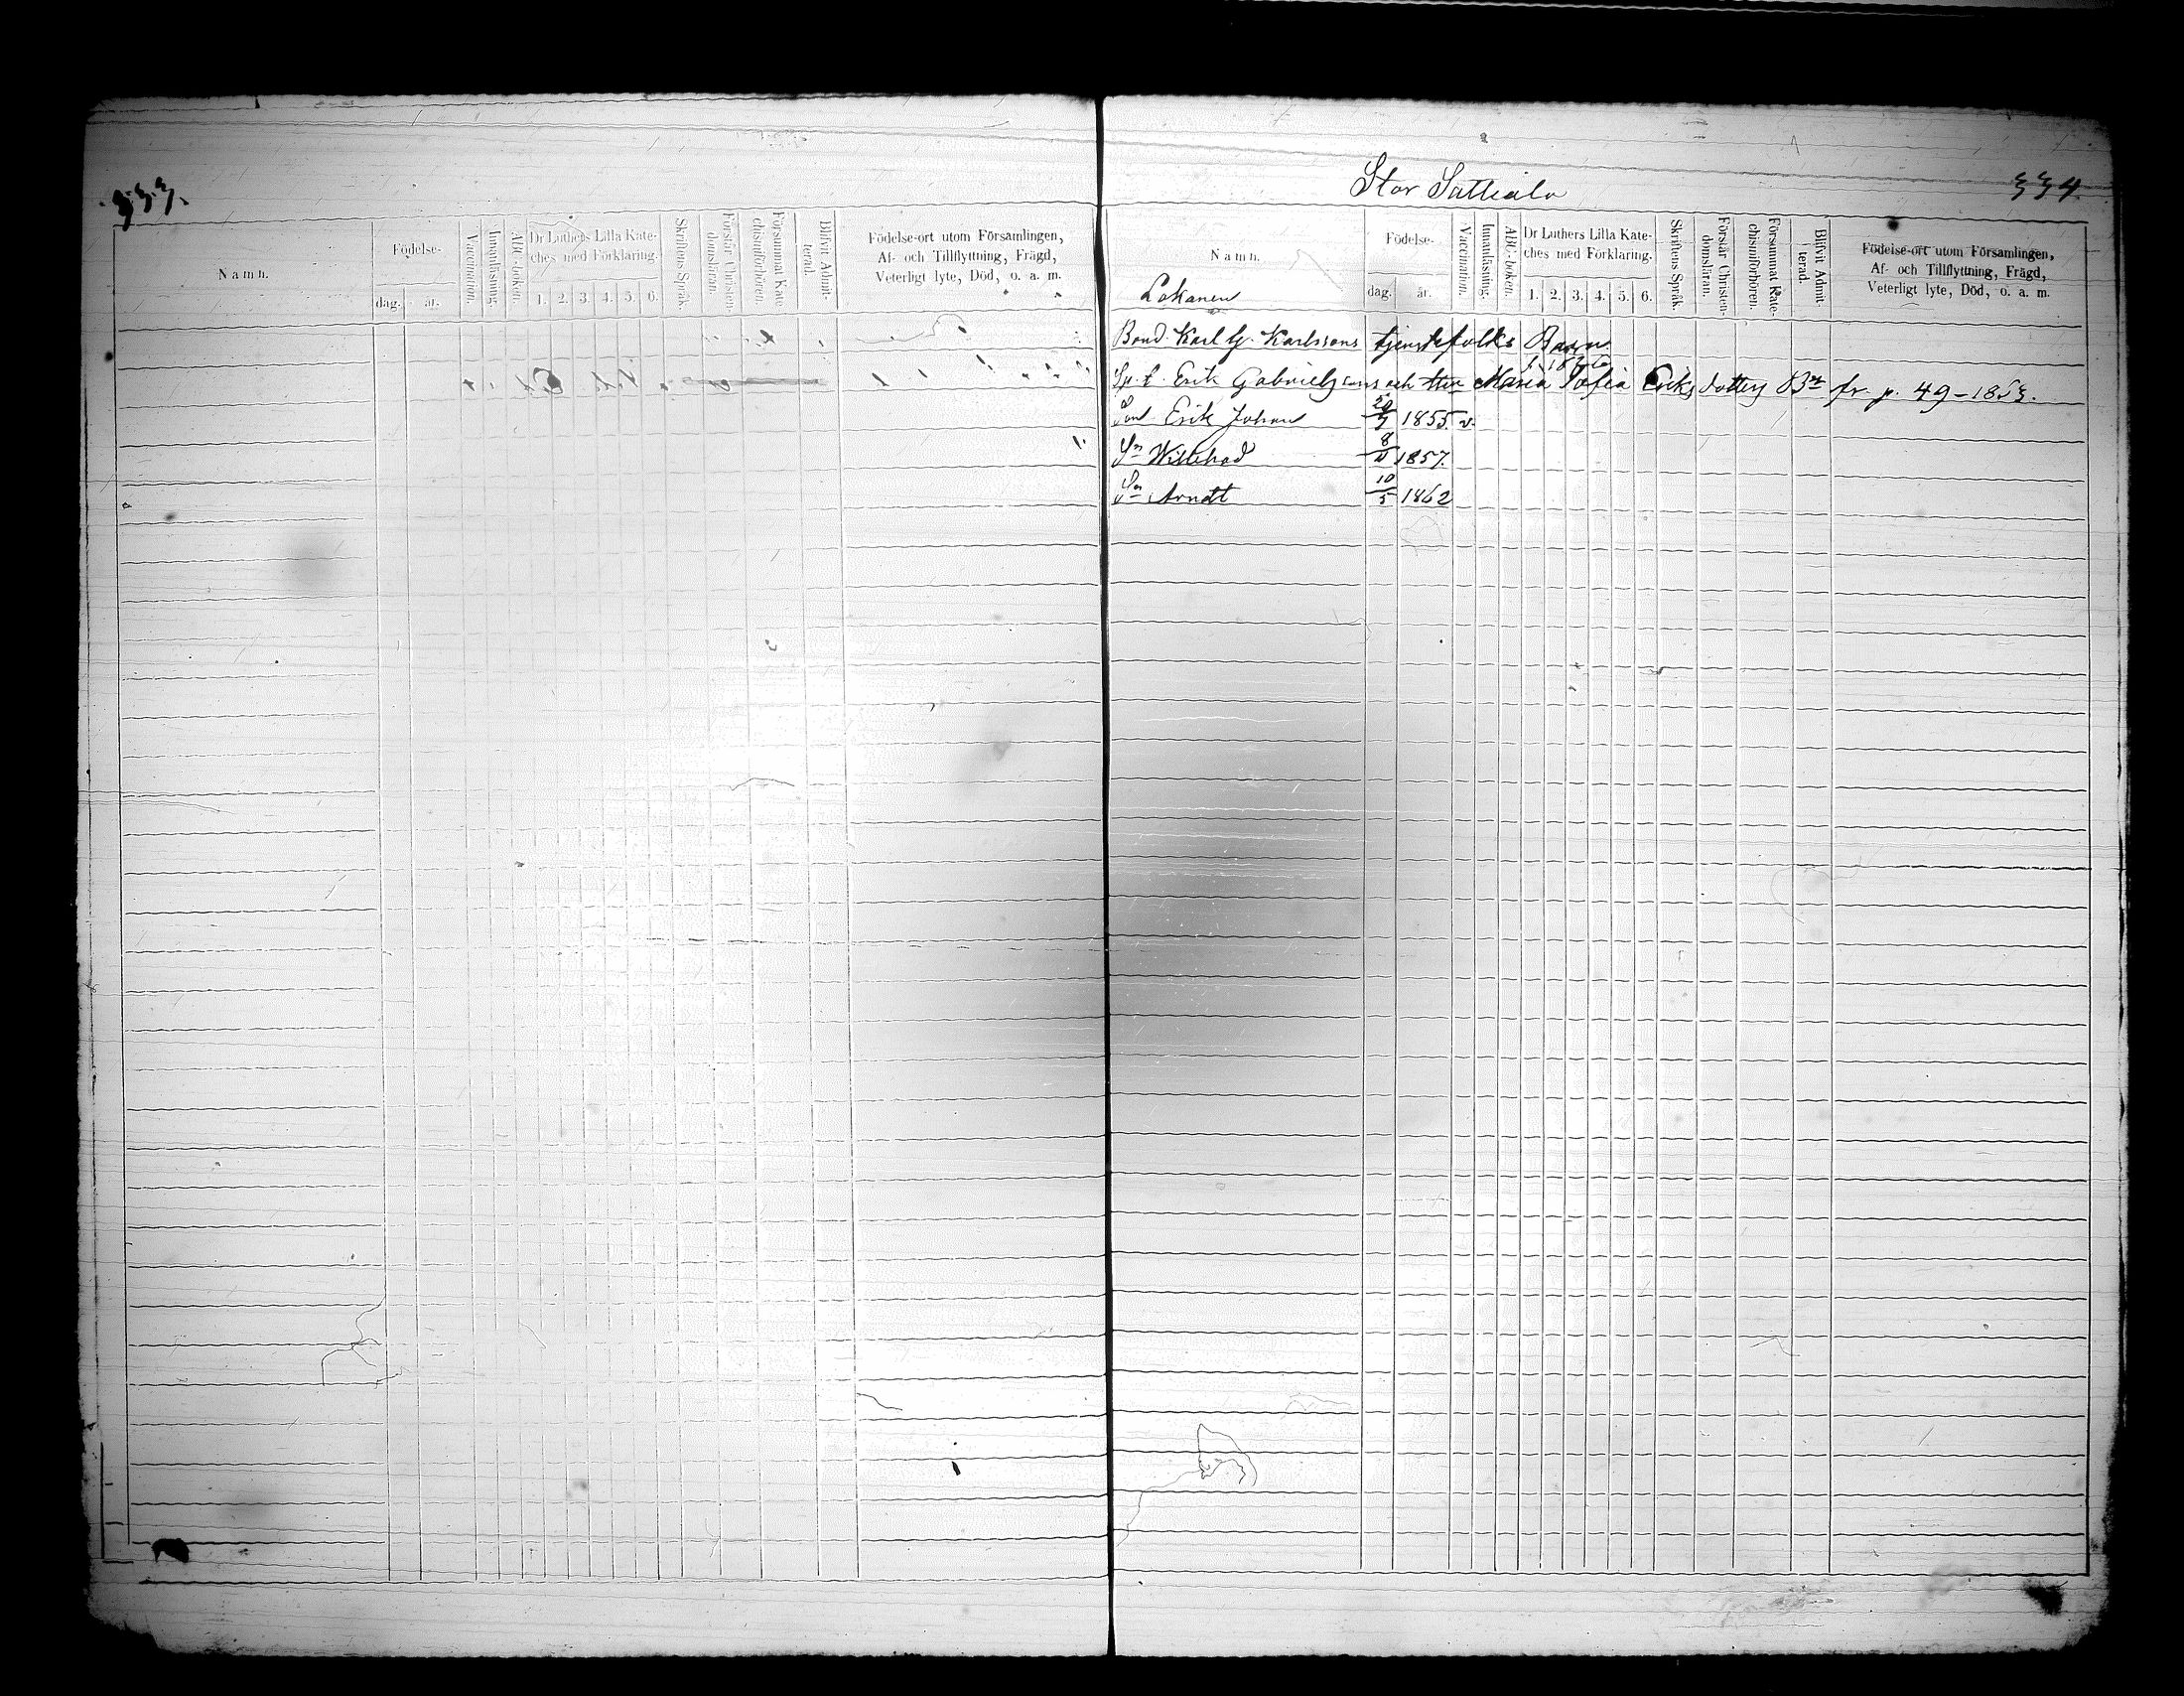 333.
Namn.
Födelse-
dag. år.
Vaccination.
Innanläsning.
ABC-boken.
Dr Luthers Lilla Kate-
ches med Förklaring.
1. 2. 3. 4. 5. 6.
Skriftens Språk.
Förstår Christen-
domsläran.
Försummat Kate-
chismiförhören.
Blifvit Admit-
terad.
Födelse-ort utom Församlingen,
Af- och Tillflyttning, Frägd,
Veterligt lyte, Död, o. a. m.
Stor Sattiala
334.
Namn.
Lokanen
Födelse-
dag. år.
Vaccination.
Innanläsning.
ABC-boken.
Dr Luthers Lilla Kate-
ches med Förklaring.
1. 2. 3. 4. 5. 6.
Skriftens Språk.
Förstår Christen-
domsläran.
Försummat Kate-
chismiförhören.
Blifvit Admit-
terad.
Födelse-ort utom Församlingen,
Af- och Tillflyttning, Frägd,
Veterligt lyte, Död, o. a. m.
Bond. Karl G. Karlssons tjenstefolks Barn
Erik Gabrielssons och Maria Sofia Eriksdotters Bn fr p. 49-1853.
Son Erik Johan 1855. v.
Sn Willehad 8 1857.
Sn Arndt 10/5 1862